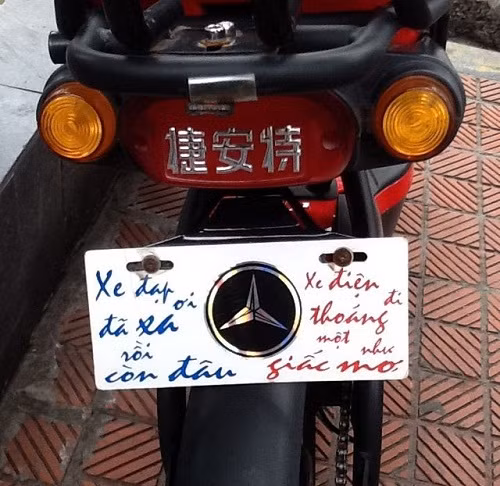 捷安特
Xe đạp ơi
đã xa
rồi
còn đâu
Xe điện đi
thoáng
một như
giấc mơ